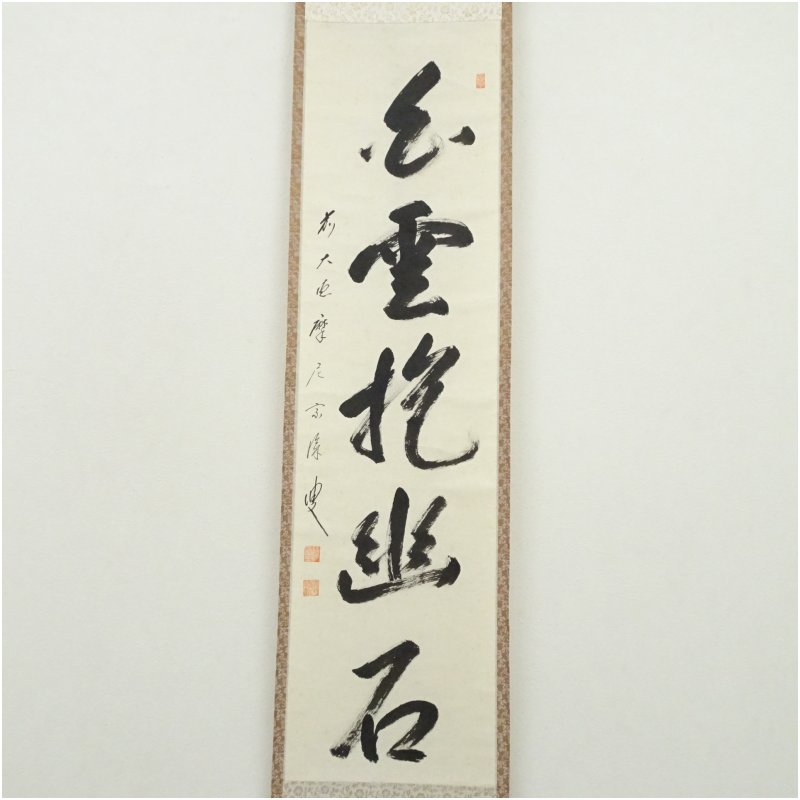 白雲抱幽石
前大徳摩尼宗潦叟